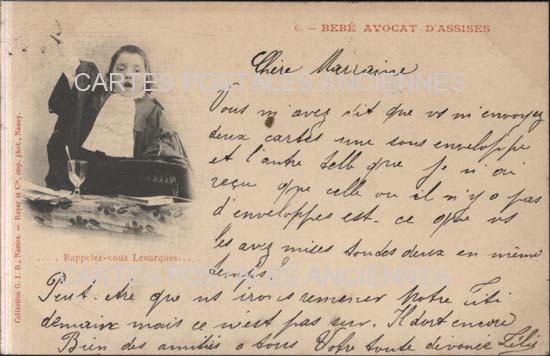 6. — BEBÉ AVOCAT D'ASSISES
CARTES POSTALES ANCIENNES
Chère Marraine
Vous m'avez dit que vs m'envoyez
deux cartes une sous enveloppe
et l'autre telle que je n'ai
reçu que celle ou il n'y a pas
d'enveloppes est-ce que vs
les avez mises toutes deux en même
temps?
..... Rappelez-vous Lesurques...
CARTES POSTALES ANCIENNES
Peut-etre que ns irons remener Votre Titi
demain mais ce n'est pas sur. Il dort encore
Bien des amitiés a tous Votre toute devouée
Collection G. I. D., Nantes. — Royer et Cie, imp. phot., Nancy.